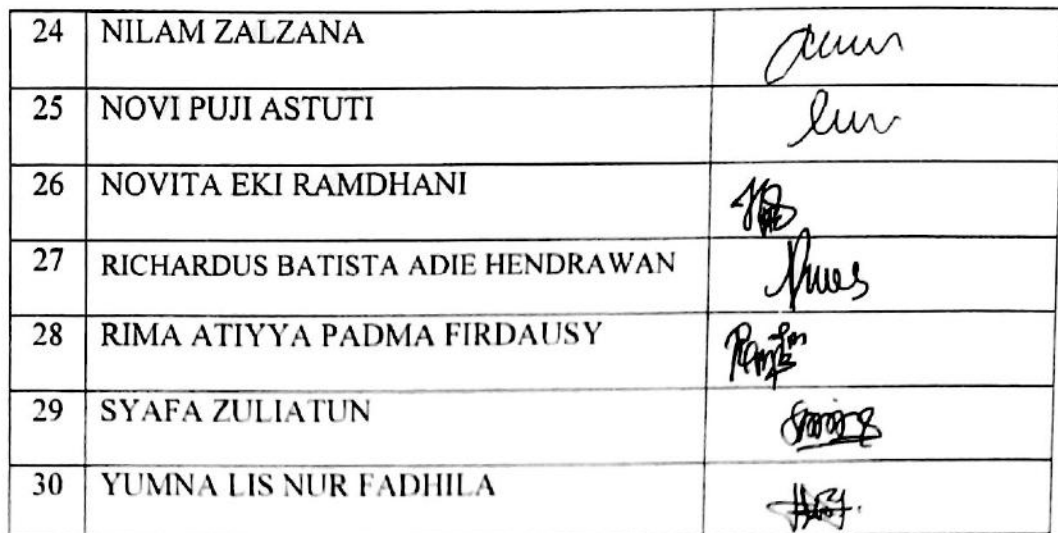 24 NILAM ZALZANA
25 NOVI PUJI ASTUTI
26 NOVITA EKI RAMDHANI
27 RICHARDUS BATISTA ADIE HENDRAWAN
28 RIMA ATIYYA PADMA FIRDAUSY
29 SYAFA ZULIATUN
30 YUMNA LIS NUR FADHILA